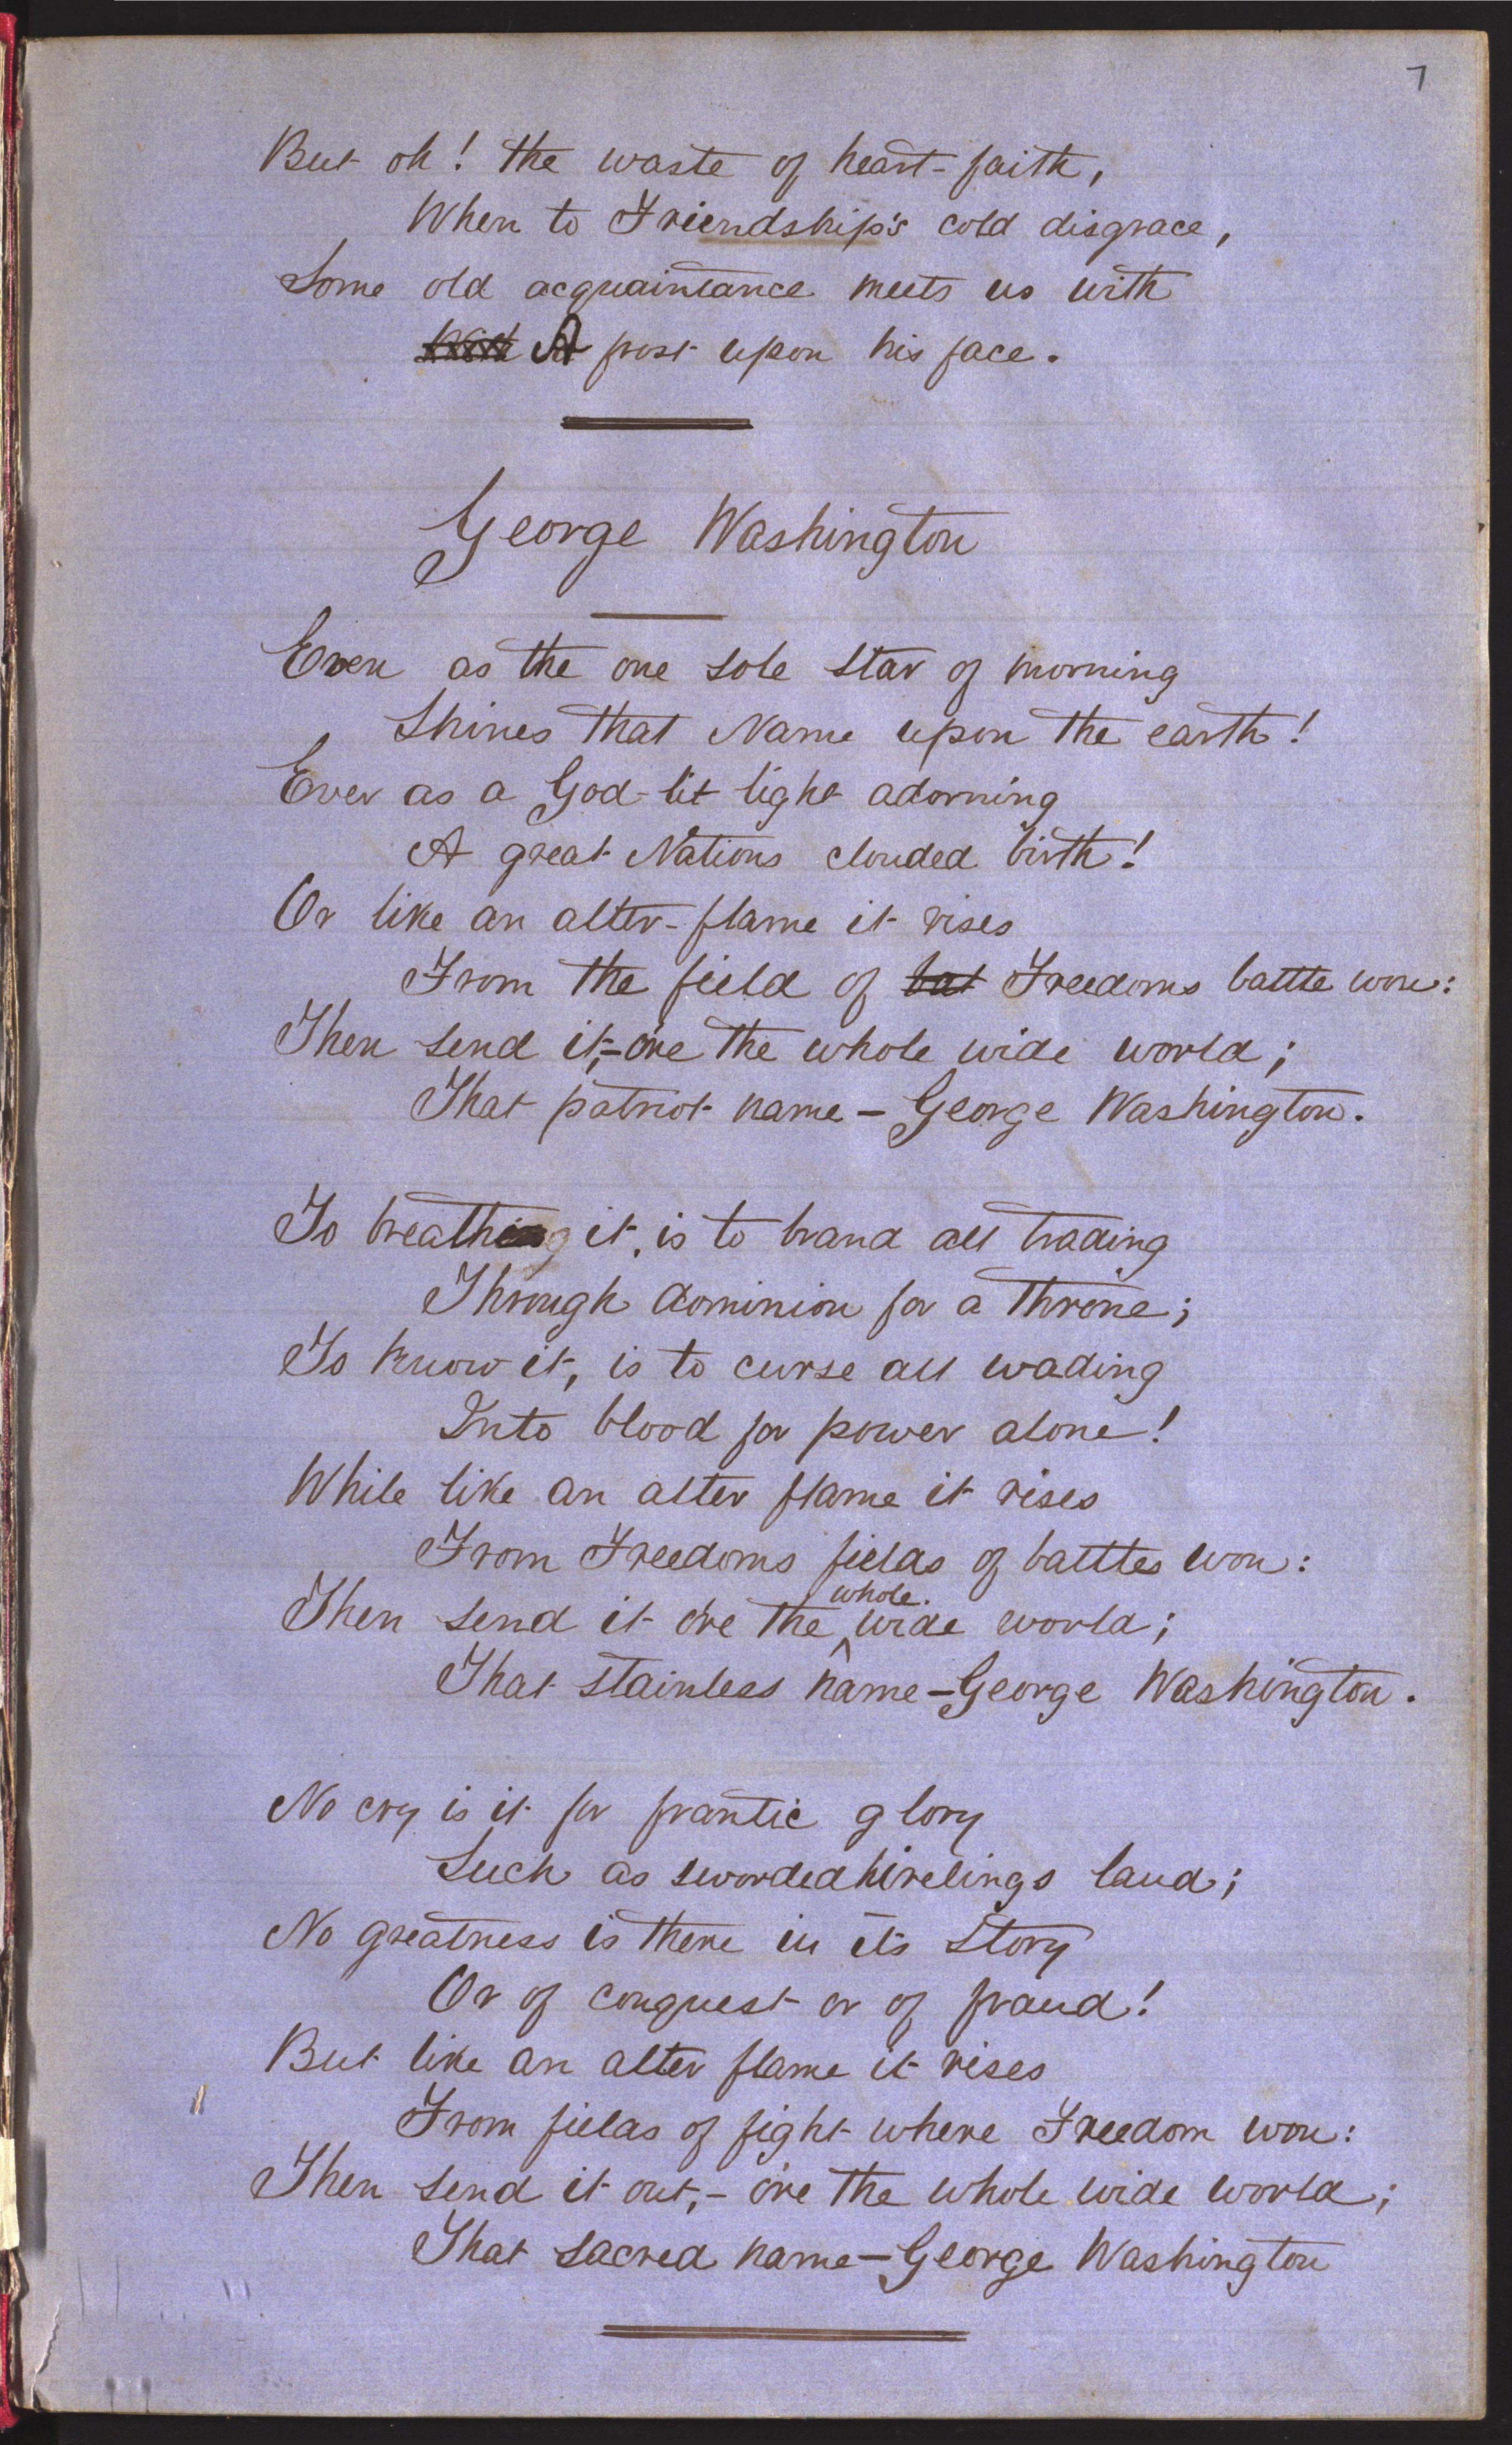 7
But oh! the waste of heart-faith,
When to Friendship's cold disgrace,
Some old acquaintance meets us with
With A frost upon his face.
George Washington
Even as the one sole star of morning
Shines that Name upon the earth!
Ever as a God-lit light adorning
A great Nations clouded birth!
Or like an alter-flame it rises
From the field of bat Freedoms battle won:
Then send it,-o're the whole wide world;
That patriot name - George Washington.
To breathing it, is to brand all trading
Through dominion for a throne;
To know it, is to curse all wading
Into blood for power alone!
While like an alter flame it rises
From Freedoms fields of battles won:
Then send it o're the whole wide world;
That stainless name - George Washington.
No cry is it for frantic glory
Such as sworded hirelings laud;
No greatness is there in its story
Or of conquest or of fraud!
But like an alter flame it rises
From fields of fight where Freedom won:
Then send it out,- o're the whole wide world;
That sacred name - George Washington